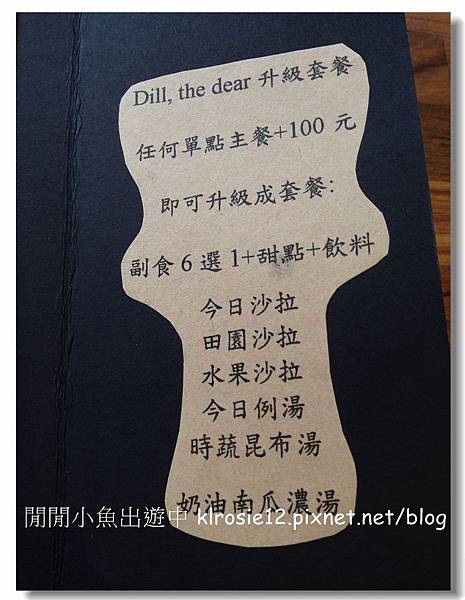 Dill, the dear 升級套餐
任何單點主餐+100 元
即可升級成套餐:
副食 6 選 1+甜點+飲料
今日沙拉
田園沙拉
水果沙拉
今日例湯
時蔬昆布湯
奶油南瓜濃湯
閒閒小魚出遊中 klrosie12.pixnet.net/blog